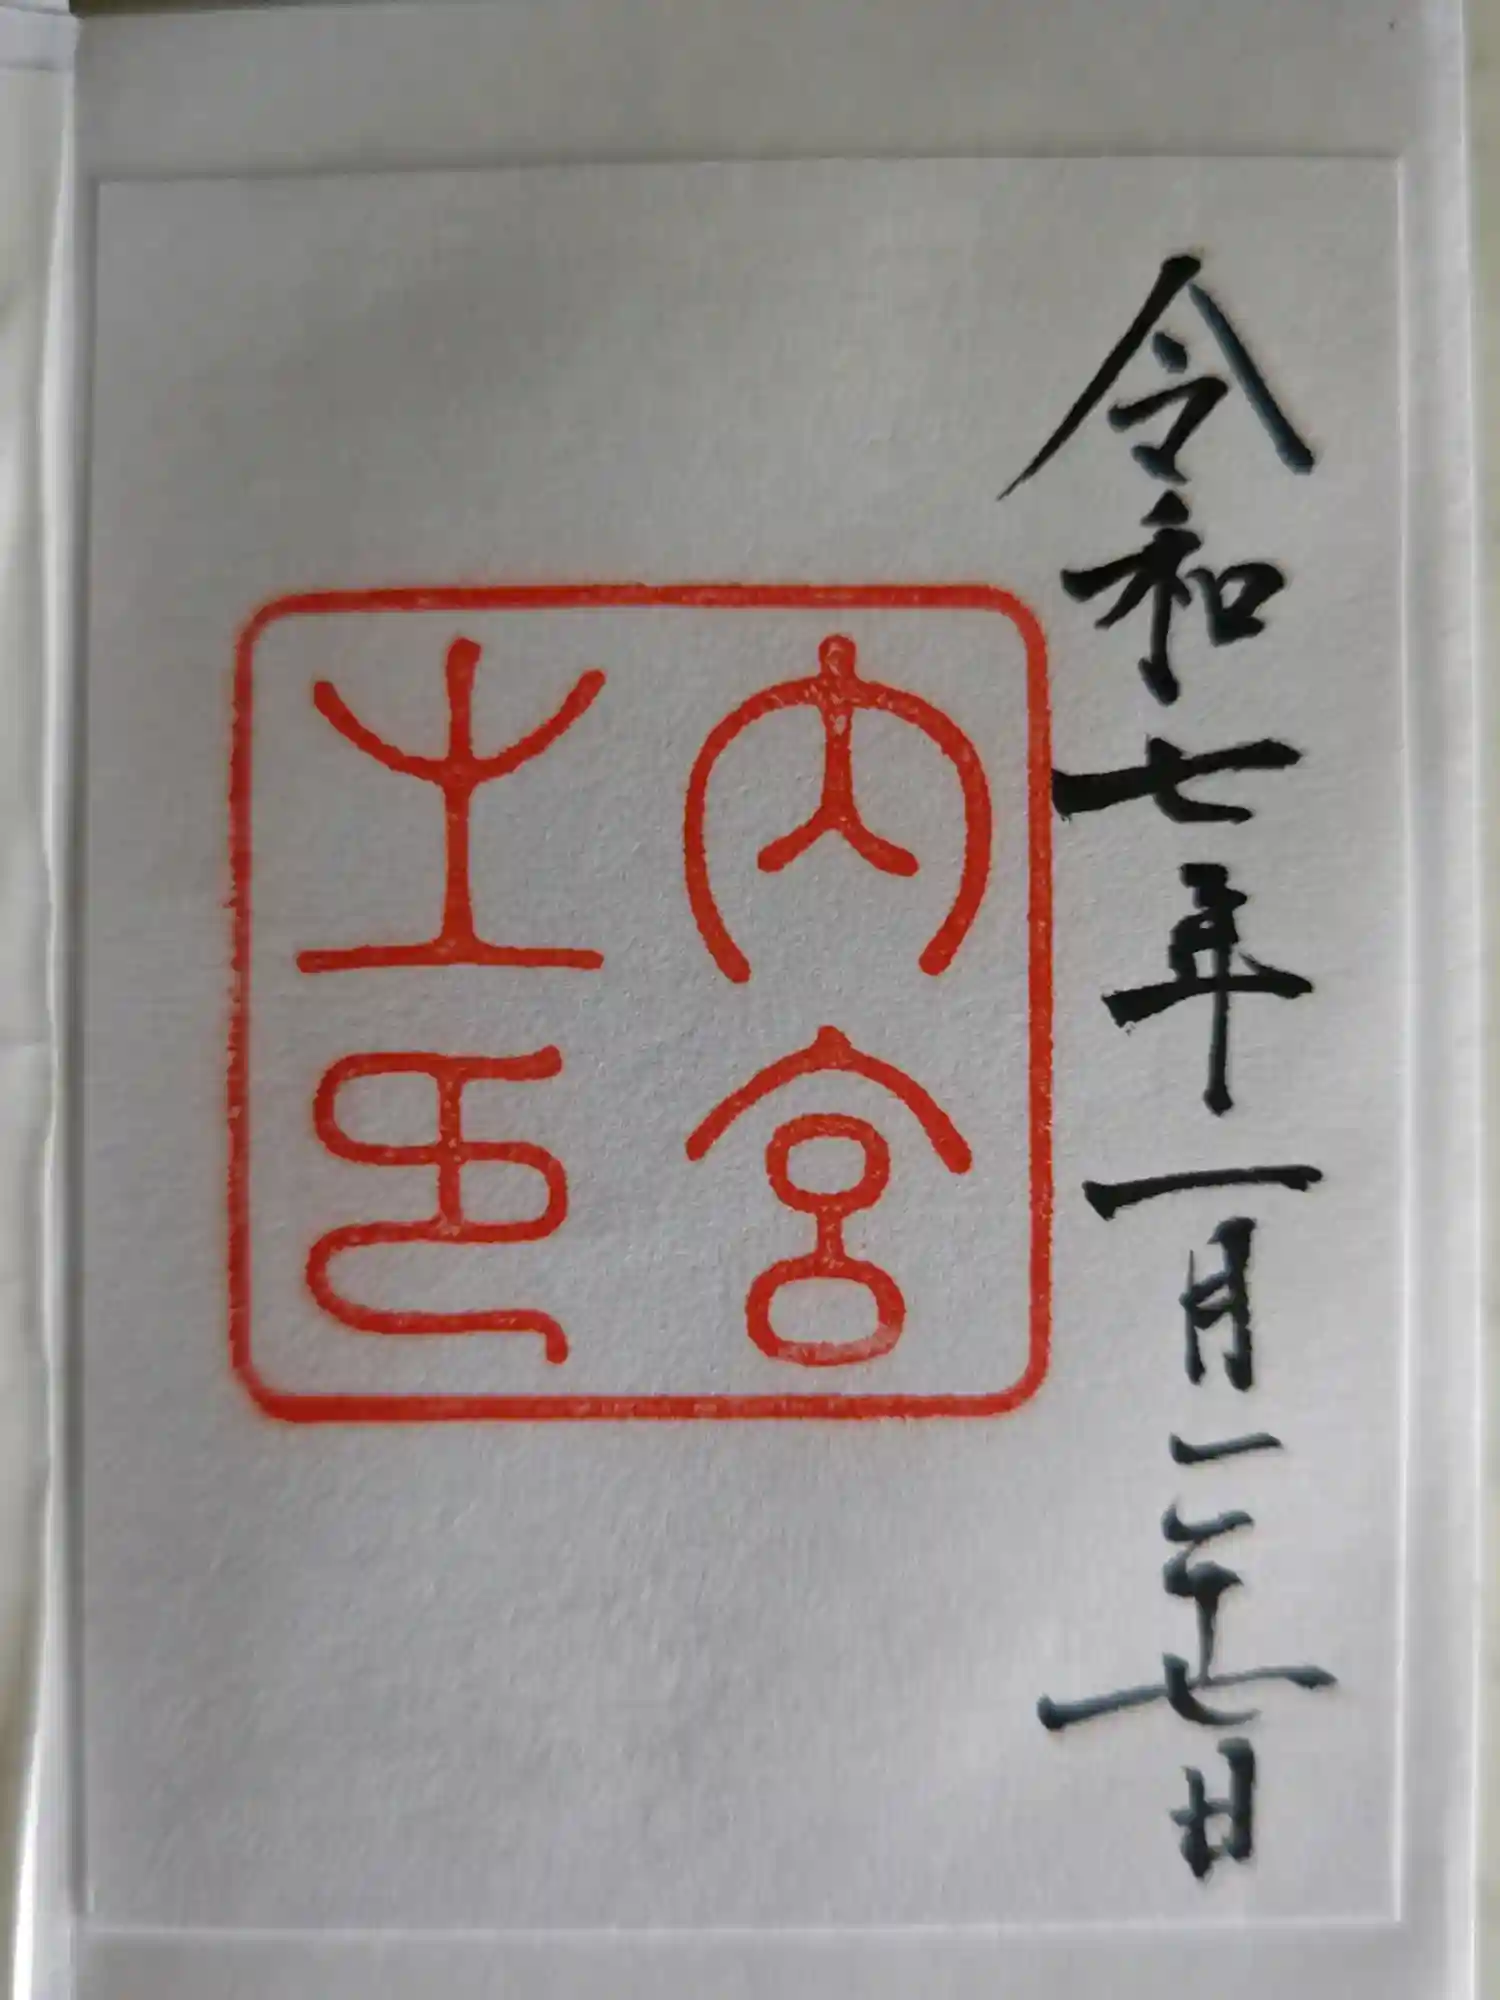 令和七年一月二十七日
内宮
之印